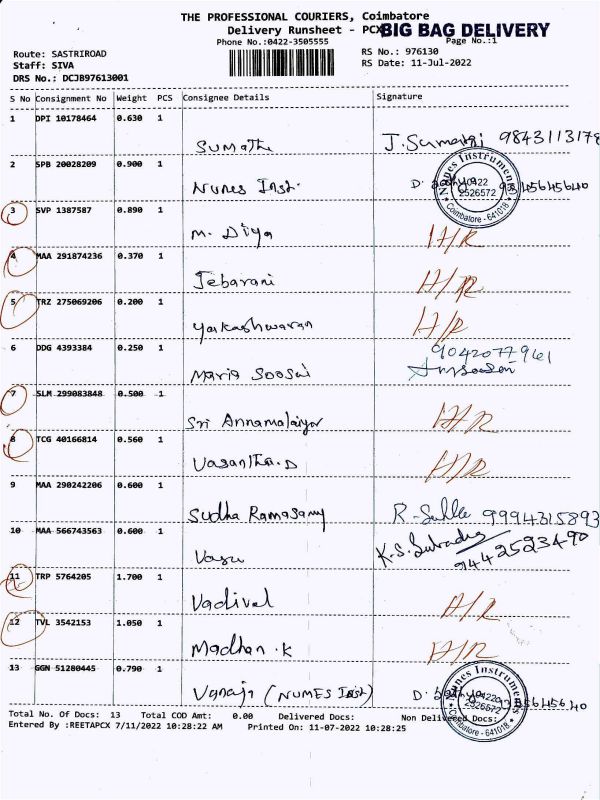 THE PROFESSIONAL COURIERS, Coimbatore
Delivery Runsheet - PCX BIG BAG DELIVERY
Phone No.:0422-3505555 Page No.:1
Route: SASTRIROAD RS No.: 976130
Staff: SIVA RS Date: 11-Jul-2022
DRS No.: DCJB97613001
S No Consignment No Weight PCS Consignee Details Signature
1 DPI 10178464 0.630 1
Sumathi 9843113178
2 SPB 20028209 0.900 1
Nunes Inst. D.
Nunes Instruments 0422 2526572 Coimbatore - 641018
3 SVP 1387587 0.890 1
M. Diya H/R
4 MAA 291874236 0.370 1
Jebarani H/R
5 TRZ 275069206 0.200 1
Yakashwaran H/R
6 DDG 4393384 0.250 1
Maria Soosai 9042077961
7 SLM 299083848 0.500 1
Sri Annamalaiyar H/R
8 TCG 40166814 0.560 1
Vasantha.D H/R
9 MAA 290242206 0.600 1
Sudha Ramasamy 9994315893
10 MAA 566743563 0.600 1
Vasu 9442523490
11 TRP 5764205 1.700 1
Vadivel H/R
12 TVL 3542153 1.050 1
Madhan.K H/R
13 GGN 51280445 0.790 1
Vanaja (NUMES Inst) D.
Nunes Instruments
Total No. Of Docs: 13 Total COD Amt: 0.00 Delivered Docs: Non Delivered Docs:
Entered By :REETAPCX 7/11/2022 10:28:22 AM Printed On: 11-07-2022 10:28:25